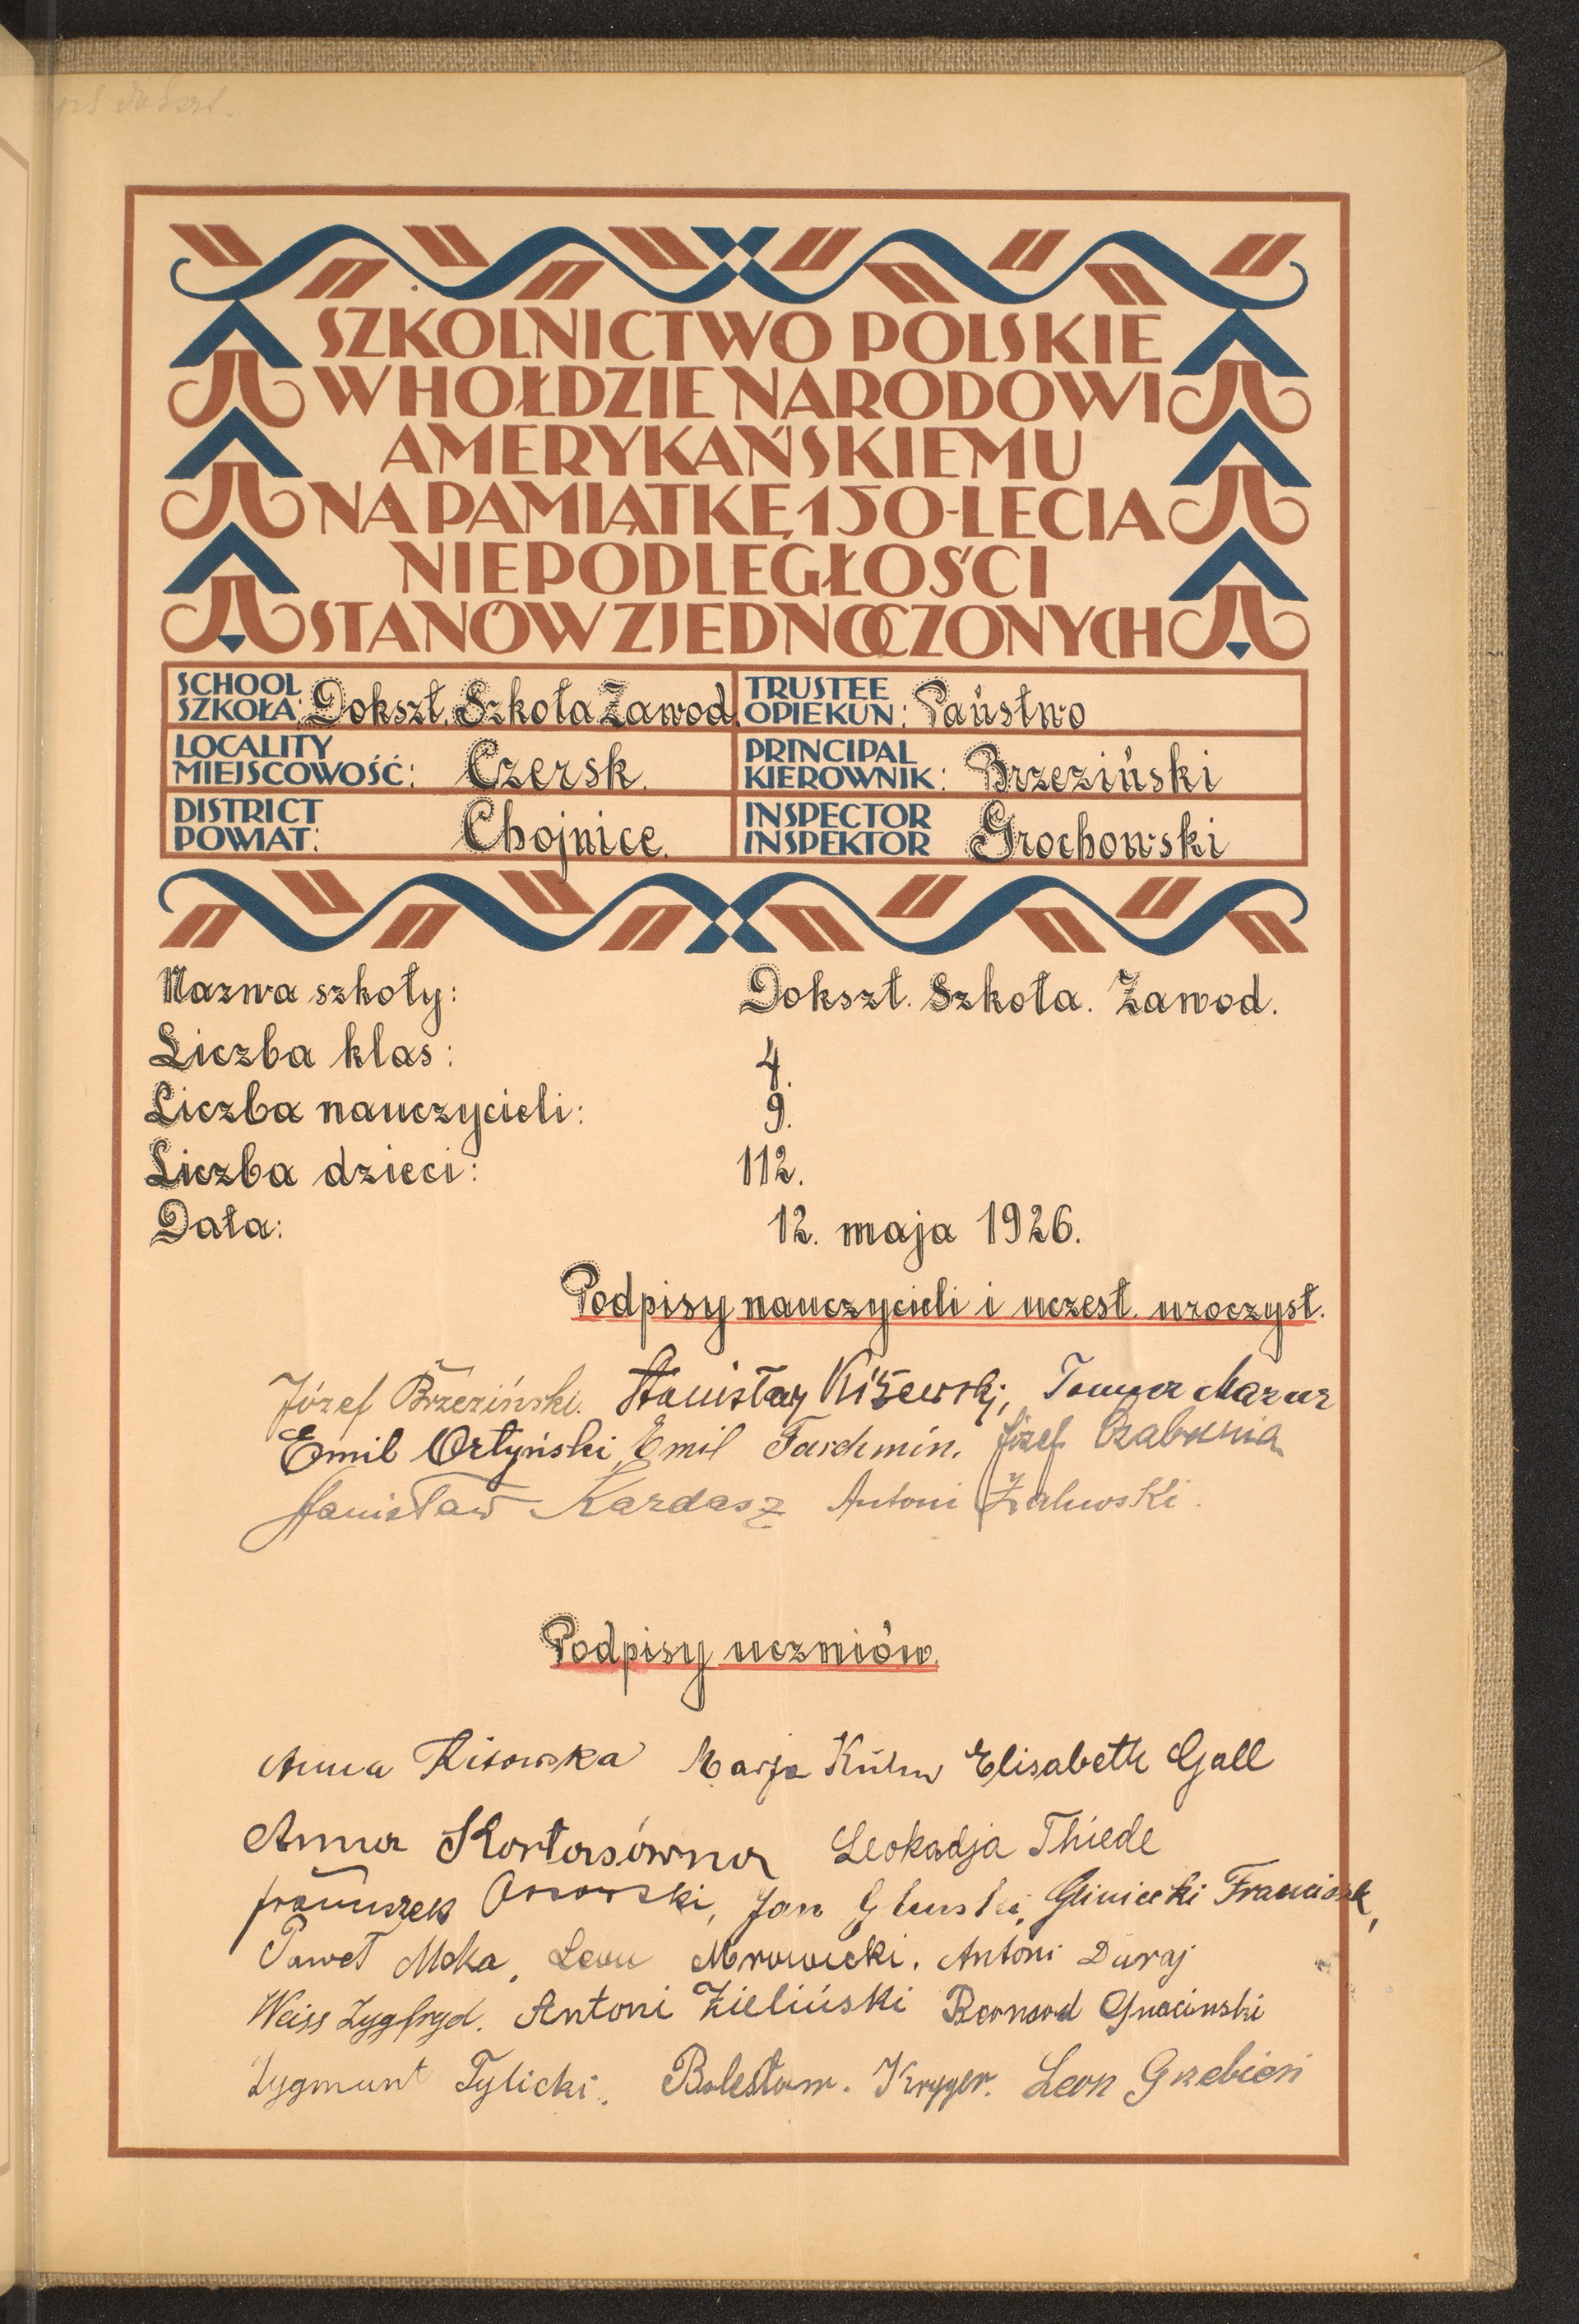 SZKOLNICTWO POLSKIE
W HOŁDZIE NARODOWI
AMERYKAŃSKIEMU
NA PAMIĄTKĘ 150-LECIA
NIEPODLEGŁOŚCI
STANÓW ZJEDNOCZONYCH
SCHOOL SZKOŁA: Dokszt. Szkoła Zawod.
TRUSTEE OPIEKUN: Państwo
LOCALITY MIEJSCOWOŚĆ: Czersk.
PRINCIPAL KIEROWNIK: Brzeziński
DISTRICT POWIAT: Chojnice.
INSPECTOR INSPEKTOR Grochowski
Nazwa szkoły: Dokszt. Szkoła. Zawod.
Liczba klas: 4.
Liczba nauczycieli: 9.
Liczba dzieci: 112.
Data: 12. maja 1926.
Podpisy nauczycieli i uczest. uroczyst.
Józef Brzeziński. Stanisław Kiżewski, Mazur
Emil Ortyński, Emil Farchmin. Józef Czabania
Stanisław Kardasz Antoni Żalewski.
Podpisy uczniów.
Anna Kisowska Marja Kühn Elisabeth Gall
Anna Kortasówna Leokadja Thiede
Franciszek Ossowski, Jan Gliniecki Franciszek,
Paweł Moka, Leon Mrowicki. Antoni Duraj
Weiss Zygfryd. Antoni Zieliński Bernard Gnaciński
Zygmunt Tylicki. Bolesław. Kryger. Leon Grebień